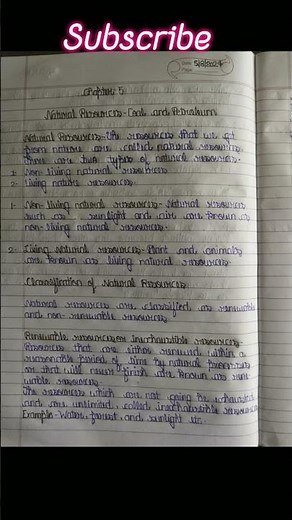 Subscribe
Date 5/9/2024
Page
Chapter: 5
Natural Resources - Coal and Petroleum
Natural Resources - The resources that we get
from nature are called natural resources.
There are two types of natural resources.
1- Non-living natural resources
2- Living nature resources.
1- Non-living natural resources - Natural resources
such as sunlight and air are known as
non-living natural resources.
2- Living natural resources - Plant and animals
are known as living natural resources.
Classification of Natural Resources
Natural resources are classified as renewable
and non-renewable resources.
Renewable resources or Inexhaustible resources -
Resources that are either renewed within a
reasonable period of time by natural processes
or that will never finish are known as renew
wable resources.
The resources which are not going be exhausted
and are unlimited, called inexhaustible resources
Example - Water, forest, and sunlight etc.